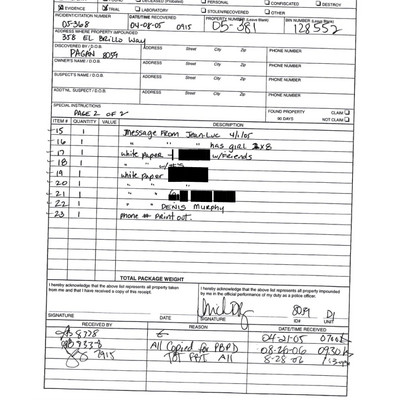 ☐ FOUND ☐ DECEASED (Probated) ☐ PERSONAL ☐ CONFISCATED ☐ DESTROY
☒ EVIDENCE ☒ TRIAL ☐ LABORATORY ☐ STOLEN/RECOVERED ☐ OTHER
INCIDENT/CITATION NUMBER DATE/TIME RECOVERED PROPERTY NUMBER (Leave Blank) BIN NUMBER (Leave Blank)
05-368 04-08-05 0915 05-381 128552
ADDRESS WHERE PROPERTY IMPOUNDED
358 EL Brillo Way
DISCOVERED BY / D.O.B. ADDRESS Street City Zip PHONE NUMBER
PAGAN 8059
OWNER'S NAME / D.O.B. ADDRESS Street City Zip PHONE NUMBER
SUSPECT'S NAME / D.O.B. ADDRESS Street City Zip PHONE NUMBER
ADDT'NL SUSPECT / D.O.B. ADDRESS Street City Zip PHONE NUMBER
SPECIAL INSTRUCTIONS FOUND PROPERTY CLAIM ☐
PAGE 2 of 2 90 DAYS NOT CLAIM ☐
ITEM # QUANTITY VALUE DESCRIPTION
15 1 Message From Jean-Luc 4/1/05
16 1 " " " has girl 2x8
17 1 white paper w/Friends
18 1 " " w/
19 1 white paper
20 1 " "
21 1 " "
22 1 " " Denis Murphy
23 1 phone # print out.
TOTAL PACKAGE WEIGHT
I hereby acknowledge that the above list represents all property taken from me and that I have received a copy of this receipt.
I hereby acknowledge that the above list represents all property impounded by me in the official performance of my duty as a police officer.
8059 D1
SIGNATURE DATE SIGNATURE ID# Unit
RECEIVED BY REASON DATE/TIME RECEIVED
8728 04-21-05 0700
9338 All Copied for PBPD 08-26-06 0930
7915 TOT FBI All 8-28-06